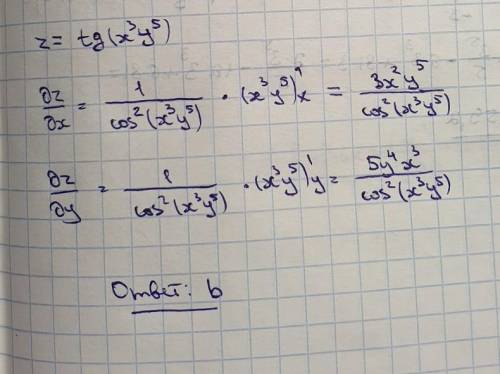 z = tg(x³y⁵)
∂z/∂x = 1/cos²(x³y⁵) · (x³y⁵)'x = 3x²y⁵/cos²(x³y⁵)
∂z/∂y = 1/cos²(x³y⁵) · (x³y⁵)'y = 5y⁴x³/cos²(x³y⁵)
Ответ: b